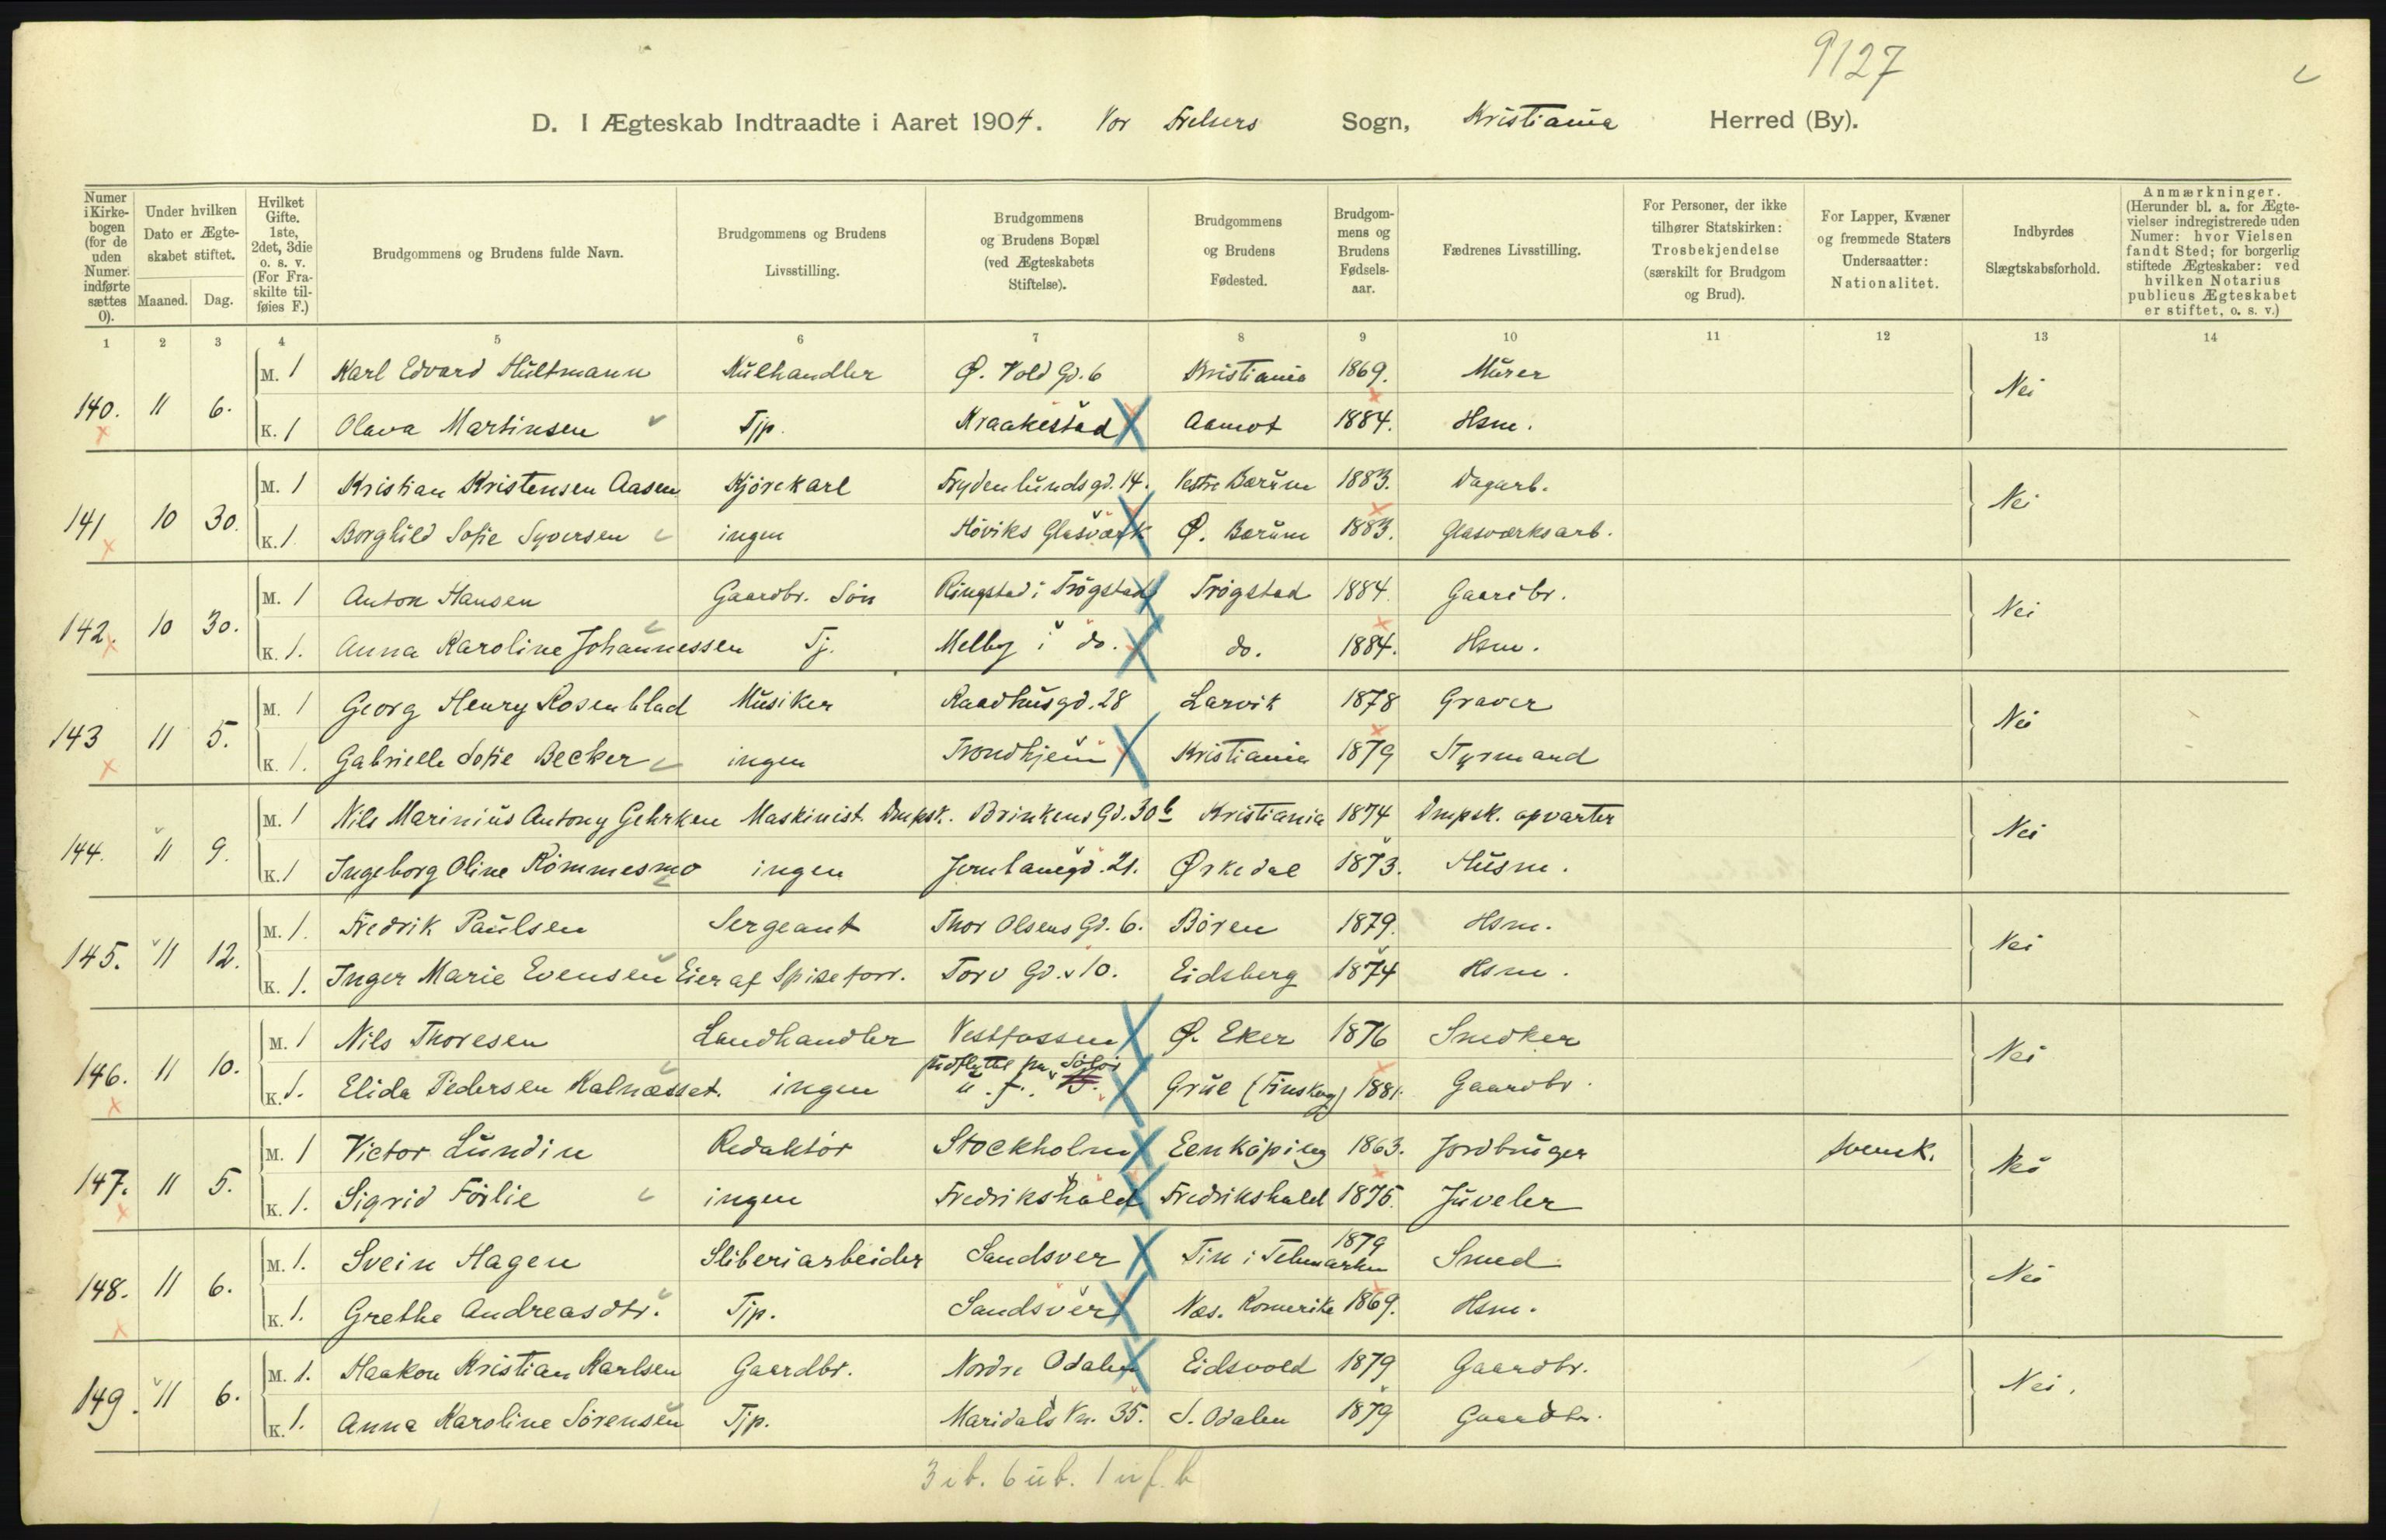 9127
D. I Ægteskab Indtraadte i Aaret 1904. Vor Frelsers Sogn, Kristiania Herred (By).
Numer i Kirkebogen (for de uden Numer indførte sættes 0).
Under hvilken Dato er Ægteskabet stiftet. Maaned. Dag.
Hvilket Gifte. 1ste, 2det, 3die o. s. v. (For Fraskilte tilføies F.)
Brudgommens og Brudens fulde Navn.
Brudgommens og Brudens Livsstilling.
Brudgommens og Brudens Bopæl (ved Ægteskabets Stiftelse).
Brudgommens og Brudens Fødested.
Brudgommens og Brudens Fødselsaar.
Fædrenes Livsstilling.
For Personer, der ikke tilhører Statskirken: Trosbekjendelse (særskilt for Brudgom og Brud).
For Lapper, Kvæner og fremmede Staters Undersaatter: Nationalitet.
Indbyrdes Slægtskabsforhold.
Anmærkninger. (Herunder bl. a. for Ægtevielser indregistrerede uden Numer: hvor Vielsen fandt Sted; for borgerlig stiftede Ægteskaber: ved hvilken Notarius publicus Ægteskabet er stiftet, o. s. v.)
1 2 3 4 5 6 7 8 9 10 11 12 13 14
M. 1 Karl Edvard Hultmann Kulhandler Ø. Vold Gd. 6 Kristiania 1869. Murer
140. 11 6. Nei
K. 1 Olava Martinsen Tjp. Kraakestad Aamot 1884. Hsm.
M. 1 Kristian Kristensen Aasen Kjørekarl Frydenlundsgd. 14. Vestre Bærum 1883. Dagarb.
141 10 30. Nei
K. 1. Borghild Sofie Syversen ingen Høviks Glasværk Ø. Bærum 1883. Glasværksarb.
M. 1 Anton Hansen Gaardbr. Søn Ringstad i Trøgstad Trøgstad 1884. Gaardbr.
142. 10 30. Nei
K. 1. Anna Karoline Johannessen Tj. Melby i do. do. 1884. Hsm.
M. 1 Georg Henry Rosenblad Musiker Raadhusgd. 28 Larvik 1878 Graver
143 11 5. Nei
K. 1. Gabrielle Sofie Becker ingen Trondhjem Kristiania 1879 Styrmand
M. 1 Nils Marinius Antony Gehrken Maskinist Dmpsk. Brinkens Gd. 30b Kristiania 1874 Dmpsk. opvarter
144. 11 9. Nei
K. 1 Ingeborg Oline Rømmesmo ingen Jernbanegd. 21. Ørkedal 1873. Husm.
M. 1. Fredrik Paulsen Sergeant Thor Olsens Gd. 6. Børsen 1879. Hsm.
145. 11 12. Nei
K. 1. Inger Marie Evensen Eier af Spiseforr. Torv Gd. 10. Eidsberg 1874 Hsm.
M. 1 Nils Thoresen Landhandler Vestfossen Ø. Eker 1876 Smedker
indflyttet fra Solør
146. 11 10. Nei
K. 1. Elida Pedersen Kalnæsset. ingen u. f. Grue (Finskog) 1881. Gaardbr.
M. 1 Victor Lundin Redaktør Stockholm Eenkøping 1863. Jordbruger svensk.
147. 11 5. Nei
K. 1. Sigrid Förlie ingen Fredrikshald Fredrikshald 1875. Juveler
M. 1. Svein Hagen Sliberiarbeider Sandsver Tin i Telemarken 1879 Smed
148. 11 6. Nei
K. 1. Grethe Andreasdtr. Tjp. Sandsver Næs. Romerike 1869. Hsm.
M. 1. Haakon Kristian Karlsen Gaardbr. Nordre Odalen Eidsvold 1879 Gaardbr.
149. 11 6. Nei.
K. 1. Anna Karoline Sørensen Tjp. Maridals Vn. 35. S. Odalen 1879 Gaardbr.
3 ib. 6 ub. 1 uf. b